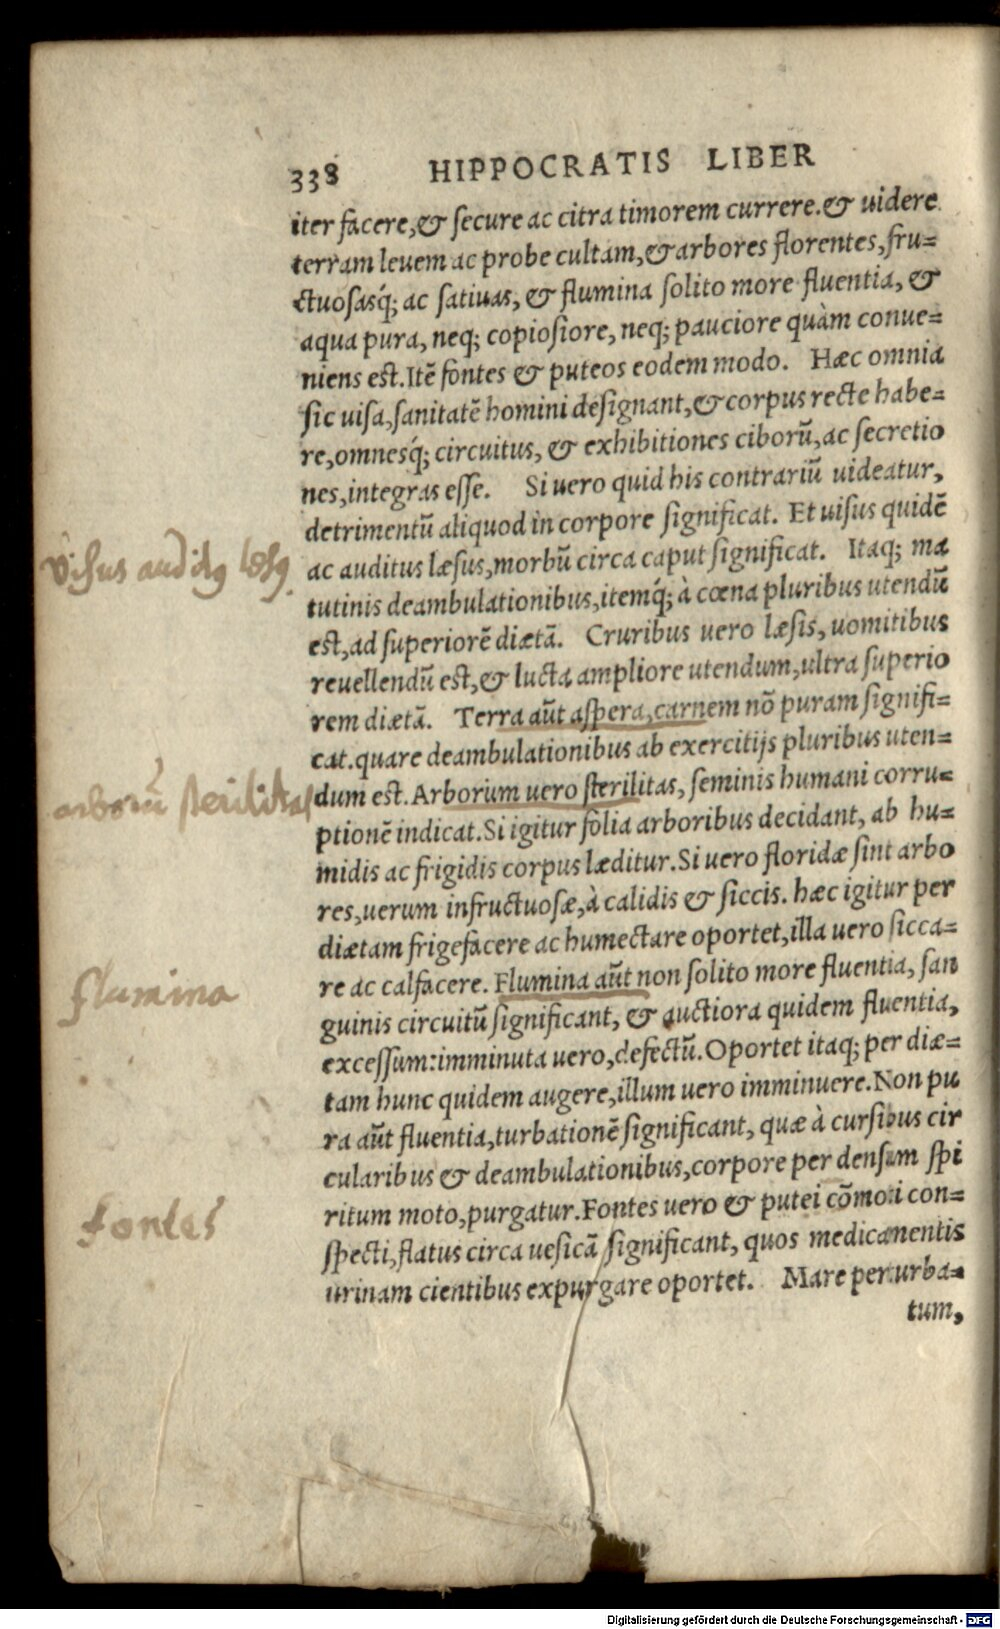 338 HIPPOCRATIS LIBER
iter facere,& secure ac citra timorem currere.& uidere
terram leuem ac probe cultam,& arbores florentes,fru=
ctuosasq́; ac satiuas, & flumina solito more fluentia, &
aqua pura, neq; copiosiore, neq; pauciore quàm conue=
niens est.Itẽ fontes & puteos eodem modo. Hæc omnia
sic uisa,sanitatẽ homini designant,& corpus recte habe=
re,omnesq́; circuitus, & exhibitiones ciborũ,ac secretio
nes,integras esse. Si uero quid his contrariũ uideatur,
detrimentũ aliquod in corpore significat. Et uisus quidẽ
Visus auditꝰ lęsꝰ.
ac auditus læsus,morbũ circa caput significat. Itaq; ma
tutinis deambulationibus,itemq́; à cœna pluribus utendũ
est,ad superiorẽ diætã. Cruribus uero læsis, uomitibus
reuellendũ est,& lucta ampliore utendum,ultra superio
rem diætã. Terra aũt aspera,carnem nõ puram signifi=
cat.quare deambulationibus ab exercitijs pluribus uten=
arborũ sterilitas
dum est.Arborum uero sterilitas, seminis humani corru=
ptionẽ indicat.Si igitur folia arboribus decidant, ab hu=
midis ac frigidis corpus læditur.Si uero floridæ sint arbo
res,uerum infructuosæ,à calidis & siccis. hæc igitur per
diætam frigefacere ac humectare oportet,illa uero sicca=
flumina
re ac calfacere. Flumina aũt non solito more fluentia, san
guinis circuitũ significant, & auctiora quidem fluentia,
excessum:imminuta uero,defectũ.Oportet itaq; per diæ=
tam hunc quidem augere,illum uero imminuere.Non pu
ra aũt fluentia,turbationẽ significant, quæ à cursibus cir
cularibus & deambulationibus,corpore per densum spi
fontes
ritum moto,purgatur.Fontes uero & putei cõmoti con=
specti,flatus circa uesicã significant, quos medicamentis
urinam cientibus expurgare oportet. Mare perturba=
tum,
Digitalisierung gefördert durch die Deutsche Forschungsgemeinschaft - DFG